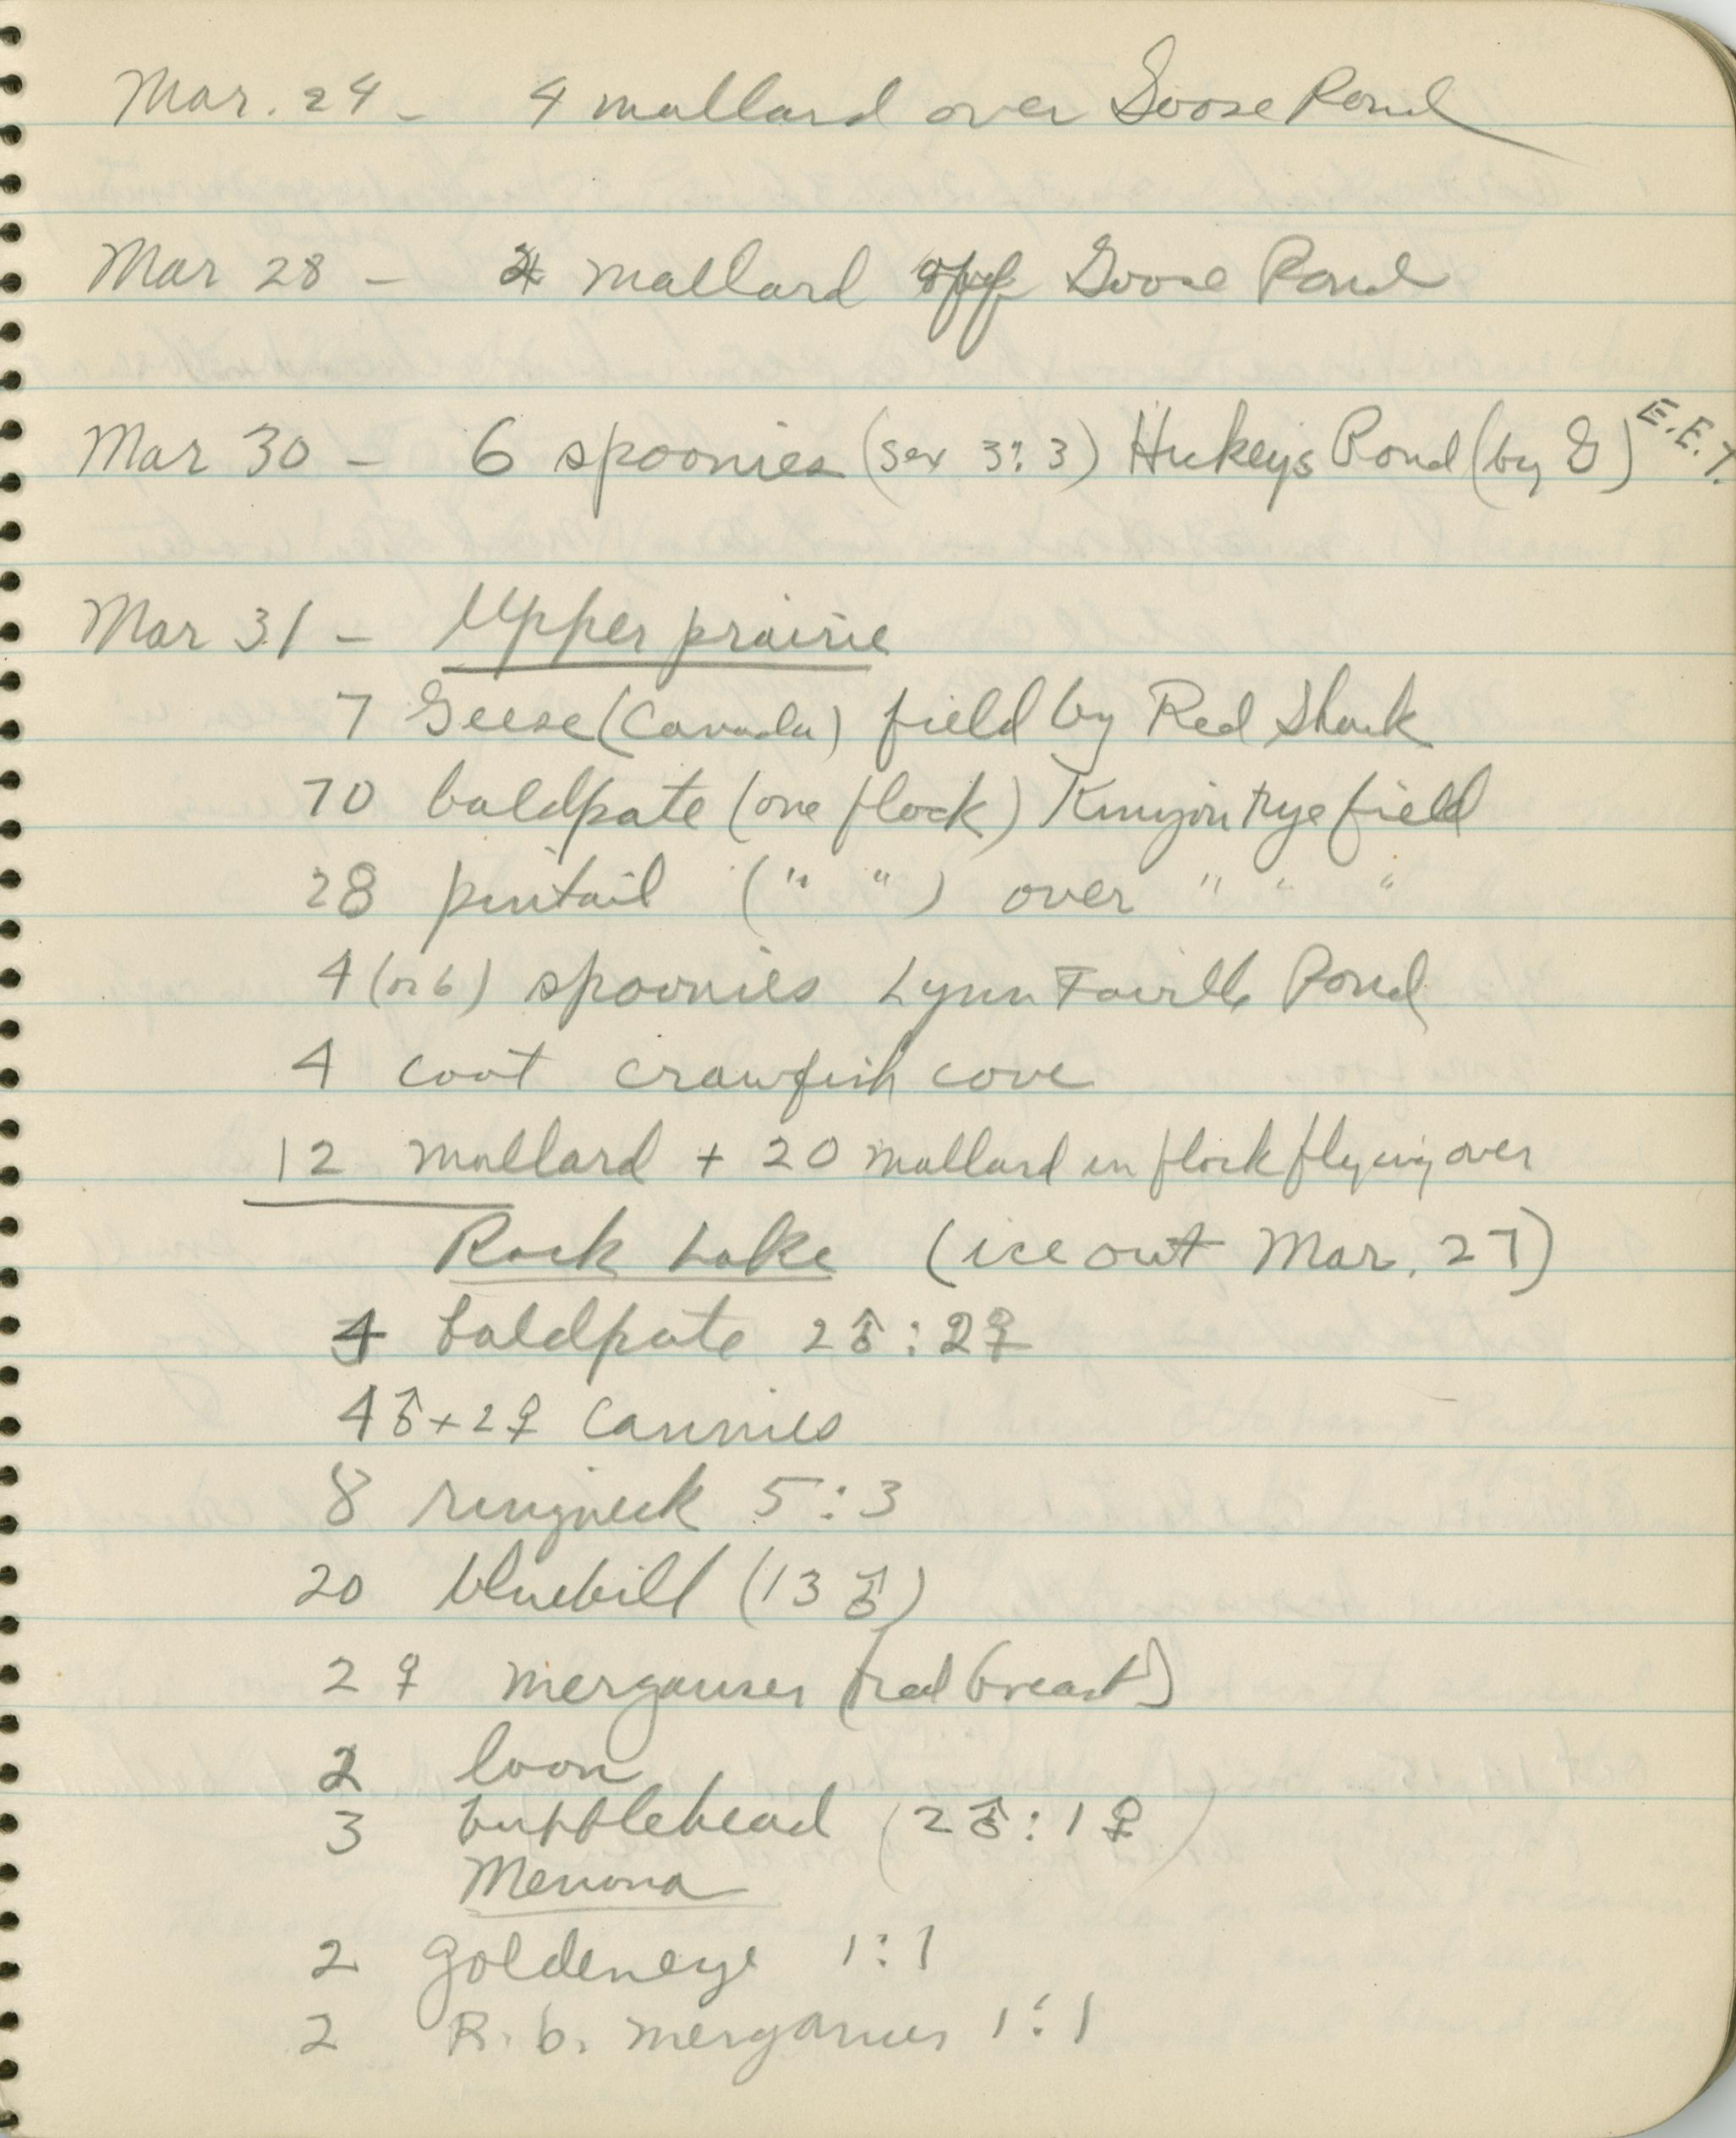 Mar. 24 - 4 mallard over Goose Pond
Mar 28 - mallard off Goose Pond
Mar 30 - 6 spoonies (sex 3:3) Hickeys Pond (by G) E.E.T.
Mar 31 - Upper prairie
7 Geese (Canada) field by Red Shack
70 baldpate (one flock) Kinyon rye field
28 pintail (" ") over " " "
4 (or 6) spoonies Lynn Pond
4 coot crawfish cove
12 mallard + 20 mallard in flock flying over
Rock Lake (ice out Mar. 27)
4 baldpate 2♂:2♀
4♂+2♀ cannies
8 ringneck 5:3
20 bluebill (13♂)
2♀ merganser (red breast)
2 loon
3 bufflehead (2♂:1♀)
Menona
2 goldeneye 1:1
2 R.b. merganser 1:1